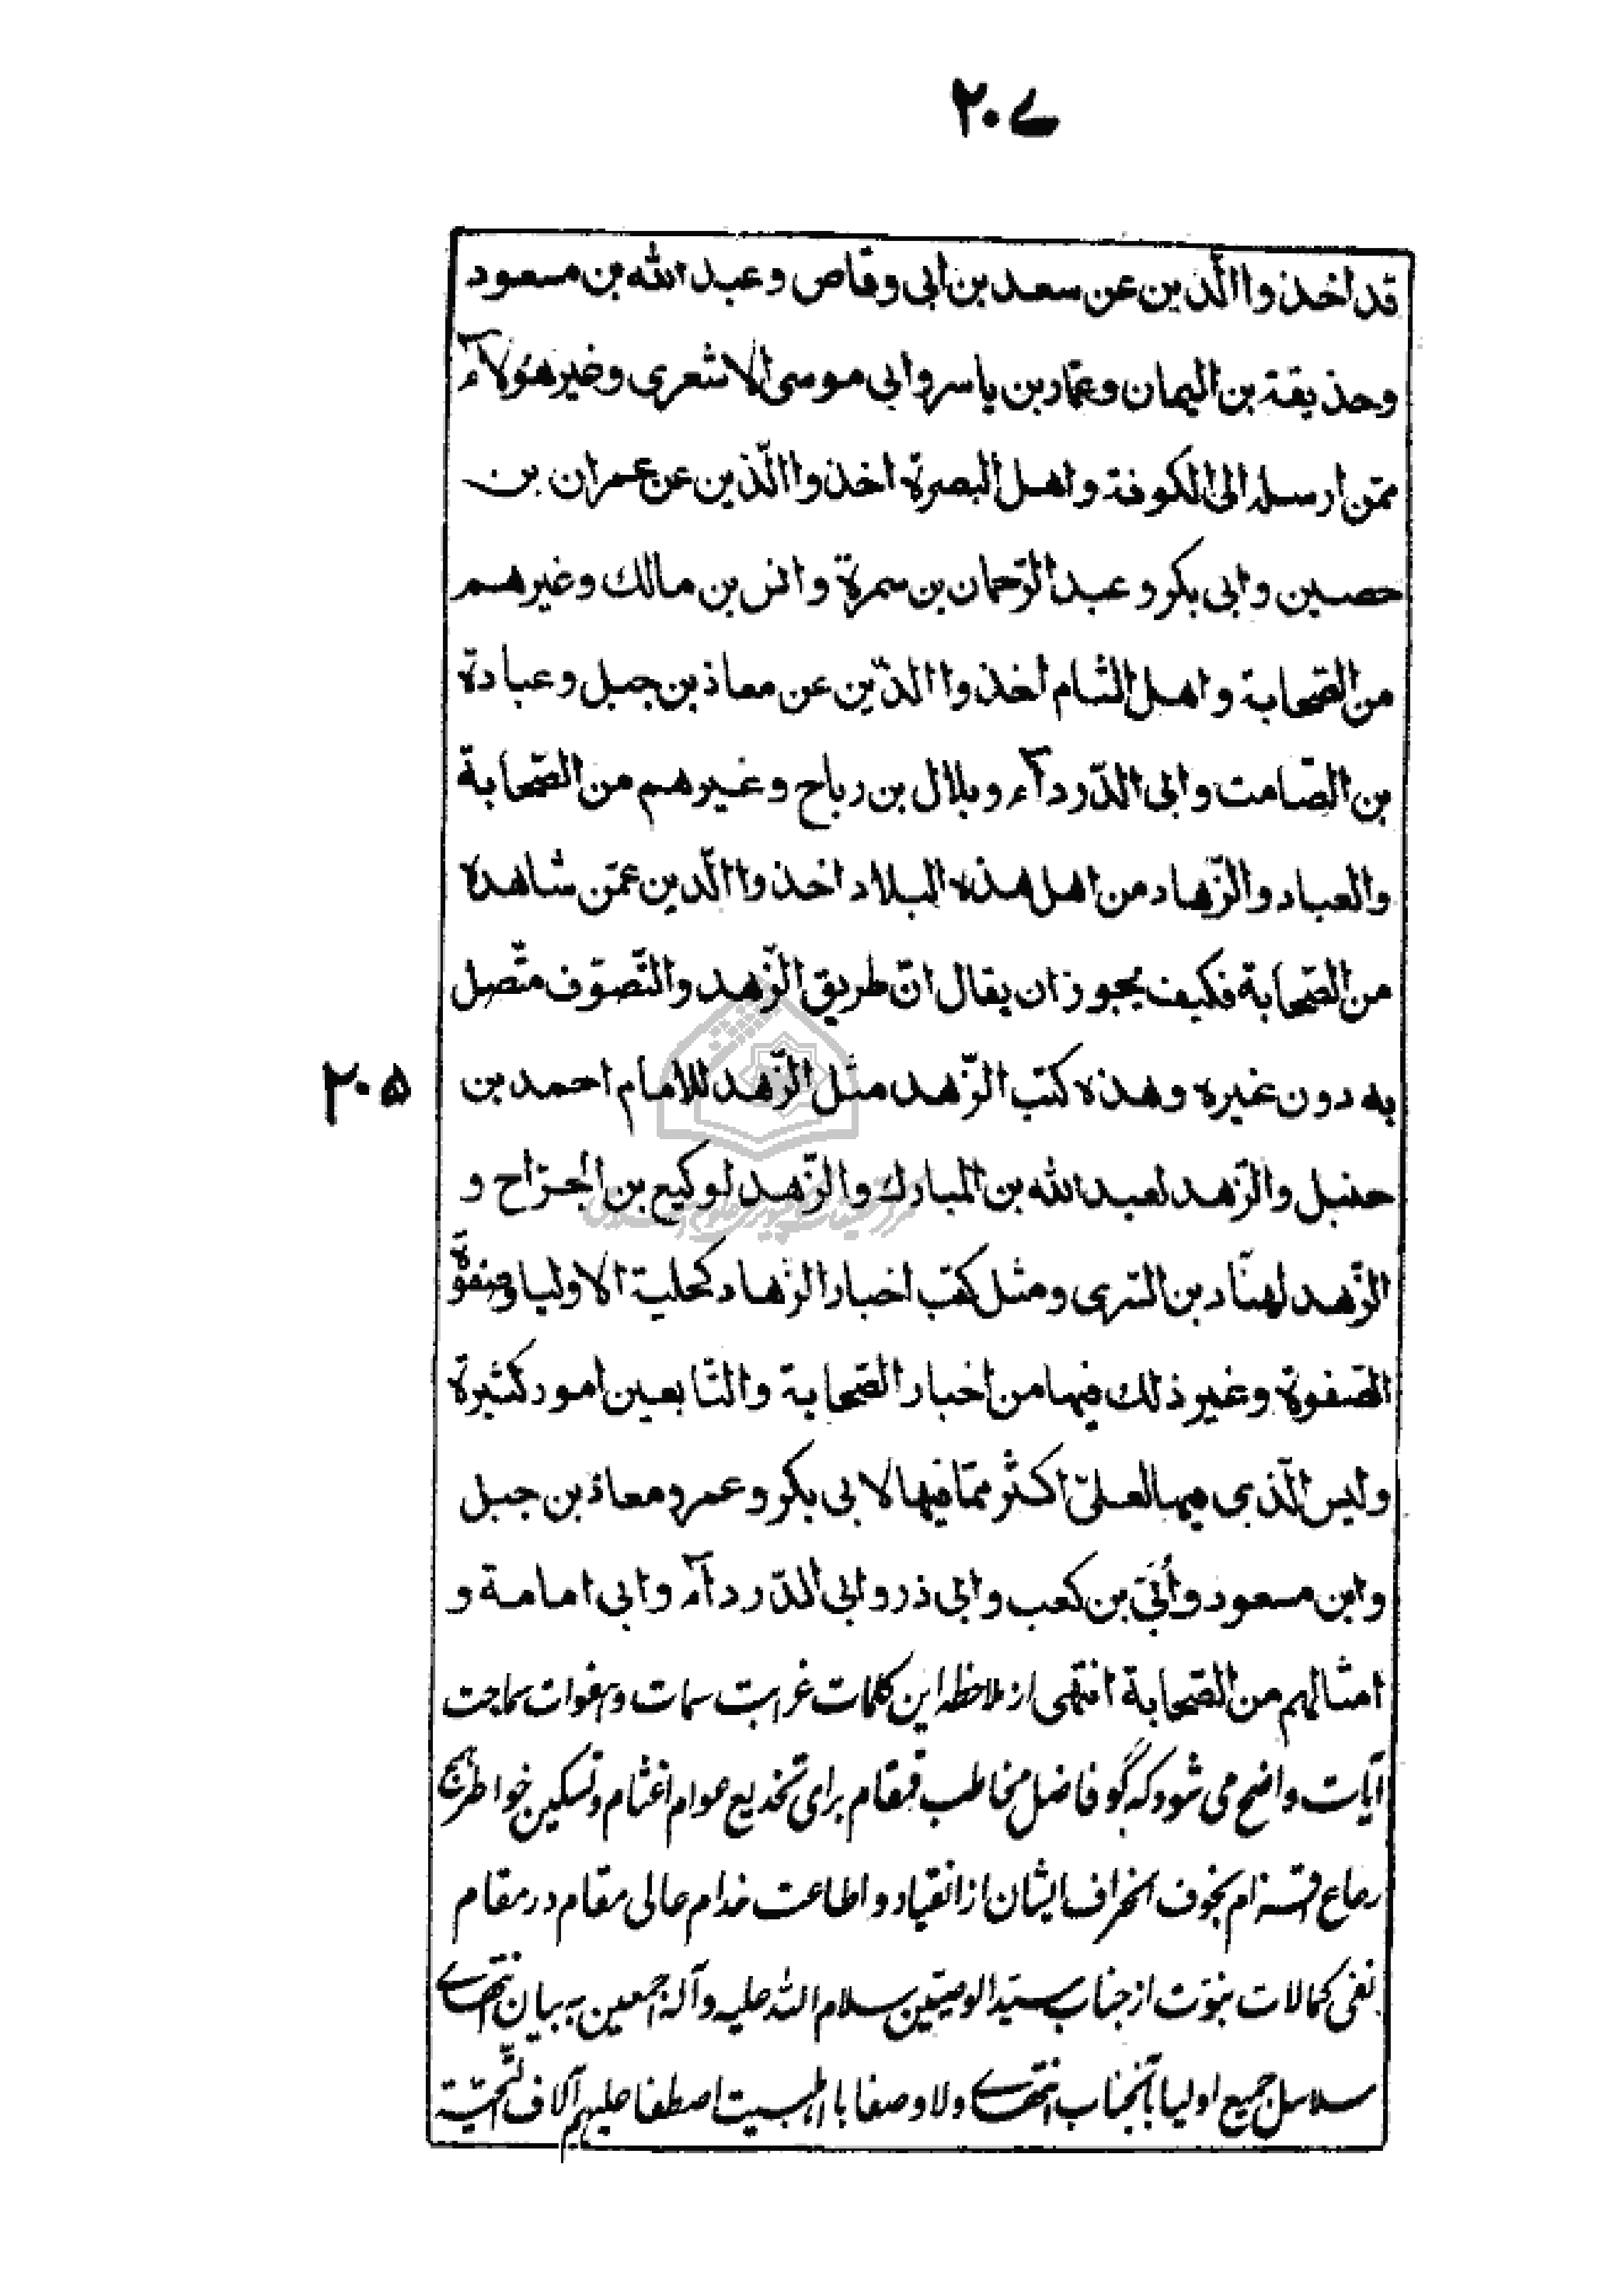 ۲۰۷
قد اخذوا الّدين عن سعد بن ابى وقاص وعبد الله بن مسعود
وحذيفة بن اليمان وعمّار بن ياسر وابى موسى الاشعرى وغير هؤلآء
ممّن ارسله الى الكوفة واهل البصرة اخذوا الّدين عن عمران بن
حصين وابى بكر وعبد الرّحمان بن سمرة وانس بن مالك وغيرهم
من الصّحابة واهل الشام اخذوا الدّين عن معاذ بن جبل وعبادة
بن الصّامت وابى الدّردآء وبلال بن رباح وغيرهم من الصّحابة
والعباد والزّهاد من اهل هذه البلاد اخذوا الّدين عمّن شاهدة
من الصّحابة فكيف يجوز ان يقال انّ طريق الزّهد والتّصوّف متّصل
به دون غيره وهذه كتب الزّهد مثل الزّهد للامام احمد بن
۲۰۵
حنبل والزّهد لعبد الله بن المبارك والزّهد لوكيع بن الجرّاح و
الزّهد لهنّاد بن السّرى ومثل كتب اخبار الزهاد كحلية الاوليا وصفوة
الصّفوة وغير ذلك فيها من اخبار الصّحابة والتّابعين امور كثيرة
وليس الّذى فيها لعلىّ اكثر ممّا فيها لابى بكر وعمر ومعاذ بن جبل
وابن مسعود وأُبَىّ بن كعب وابى ذر وابى الدّردآء وابى امامة و
امثالهم من الصّحابة انتهى از ملاحظه اين كلمات غرابت سمات وهفوات سماجت
آيات واضح مى شود كه گو فاضل مخاطب قمقام براى تخديع عوام اغثام وتسكين خواطر همج
رعاع اقزام بخوف انحراف ايشان از انقياد و اطاعت خدام عالى مقام در مقام
نفى كمالات نبوّت از جناب سيّد الوصيّين سلام الله عليه وآله اجمعين به بيان انتهاے
سلاسل جميع اوليا بآنجناب انتهاے ولا وصفا با اهلبيت اصطفا عليهم آلاف التّحيّة